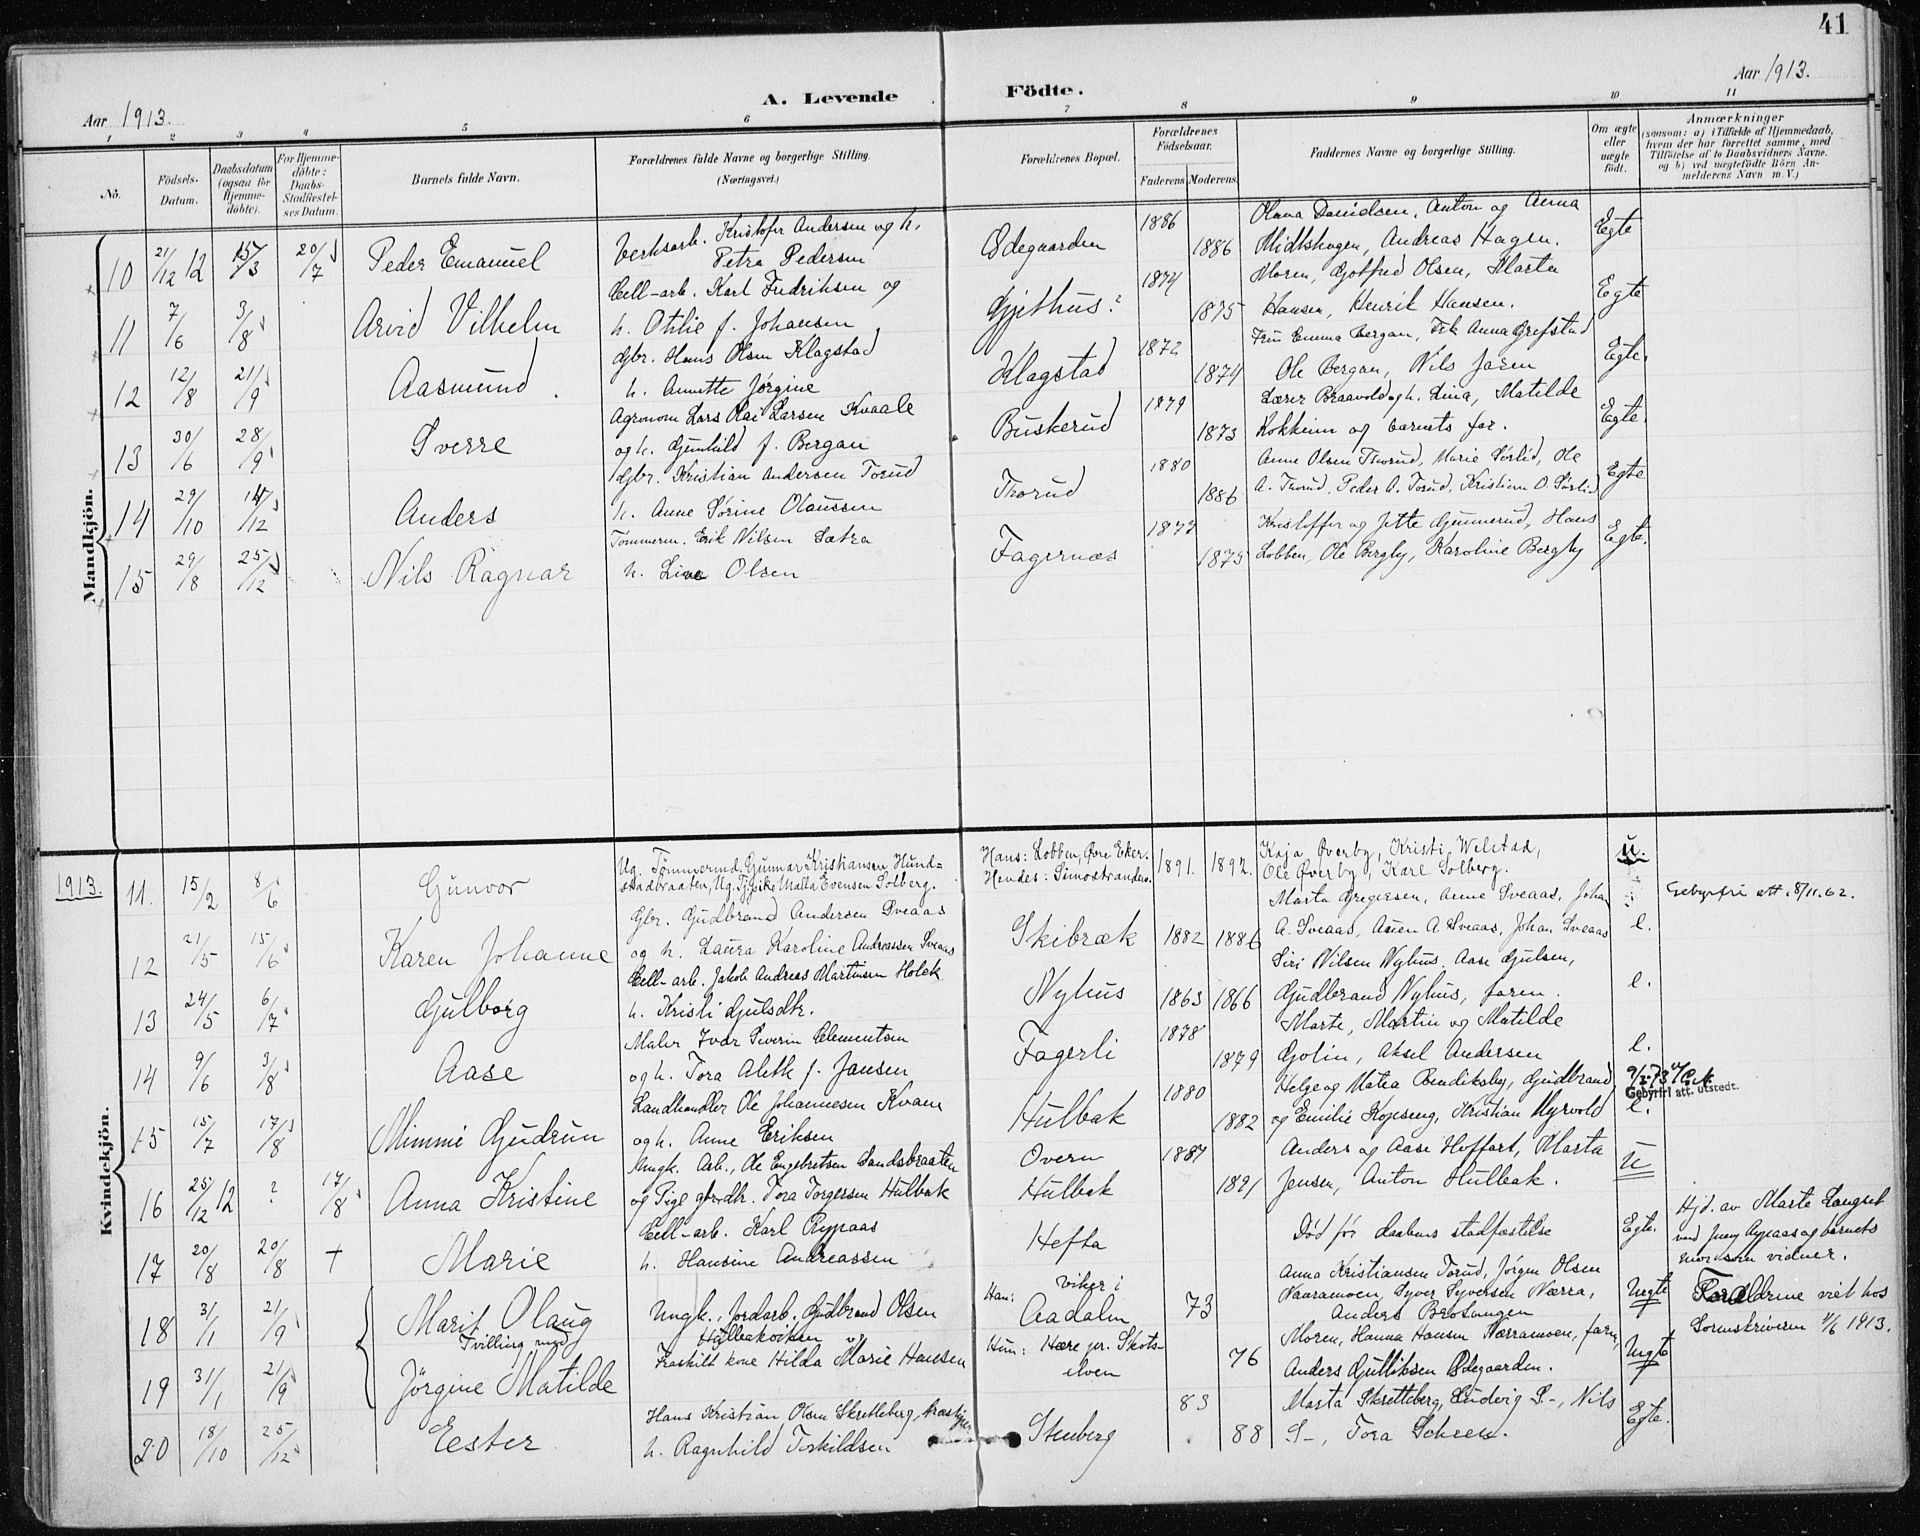 41
Aar 1913.
A. Levende Födte.
Aar 1913.
1 2 3 4 5 6 7 8 9 10 11
Nö.
Födsels-Datum.
Daabsdatum (ogsaa for Hjemme-döbte).
For Hjemme-döbte: Daabs-Stadfæstel-ses Datum.
Barnets fulde Navn.
Forældrenes fulde Navne og borgerlige Stilling.
(Næringsvei.)
Forældrenes Bopæl.
Forældrenes Födselsaar.
Faderens. Moderens.
Faddernes Navne og borgerlige Stilling.
Om ægte eller uægte födt.
Anmærkninger
(saasom: a) i Tilfælde af Hjemmedaab, hvem der har forrettet samme, med Tilföielse af to Daabsvidners Navne. og b) ved uægtefödte Börn An-melderens Navn m. V.)
Mandkjön.
10 21/12 12 15/3 20/7 Peder Emanuel Verksarb. Kristofer Andersen og h. Petra Pedersen Ödegaarden 1886 1886 Olava Danielsen, Anton og Anna Midtskogen, Andreas Hagen. Egte
11 7/6 3/8 Arvid Vilhelm Cell-arb. Karl Fredriksen og h. Otilie f. Johansen Gjethus: 1874 1875 Moren, Gotfred Olsen, Marta Hansen, Henrik Hansen. Egte
12 12/8 21/9 Aasmund. Gbr. Hans Olsen Klagstad h. Annette Jørgine Klagstad 1872 1874 Fru Emma Bergan, Frk Anna Grefstad Ole Bergan, Nils Jaren Egte.
13 30/6 28/9 Sverre Agronom Lars Olai Larsen Kvaale og h. Gunhild f. Bergan Buskerud 1879 1873 Lærer Braavold og h. Lina, Matilde Kokkeim og barnets far. Egte.
14 29/10 14/12 Anders Gbr. Kristian Andersen Torud h. Anne Sørine Olaussen Thorud 1880 1886 Anne Olsen Thorud, Marie Sørlid, Ole A. Thorud, Peder A. Torud, Kristian O. Sørlid Egte
15 29/8 25/12 Nils Ragnar Tømmerm. Erik Nilsen Sætra h. Live Olsen Fagernæs 1873 1875 Kristoffer og Jette Gunnerud, Hans Lobben, Ole Bergby, Karoline Bergby Egte.
Kvindekjön.
1913.
11. 15/2 8/6 Gunvor Ug. Tømmermd. Gunnar Kristiansen Hund-stadbraaten, Ug. Tj.pike Malla Evensen Solberg. Hans: Lobben, Øvre Eker. Hendes: Simostranden. 1891. 1892. Kaja Øverby, Kristi Welstad, Ole Øverby, Kare Solberg. u. Gebyrfri att. 8/11.62.
12 21/5 15/6 Karen Johanne Gbr. Gudbrand Andersen Sveaas og h. Laura Karoline Andreassen Sveaas Skibræk 1882 1886 Marta Gregersen, Anne Sveaas, Johan A. Sveaas, Asen A. Sveaas, Johan Sveaas e.
13 24/5 6/7 Gulborg Cell-arb. Jakob Andreas Martinsen Holek h. Kristi Gulsdtr. Nyhus 1863 1866 Siri Nilsen Nyhus, Aase Gulsen, Gudbrand Nyhus, faren. e.
14 9/6 3/8 Aase Maler Ivar Severin Clementsen og h. Tora Aleth f. Jansen Fagerli 1878 1879 Marte, Martin og Matilde Golin, Aksel Andersen e.
15 15/7 17/8 Mimmi Gudrun Landhandler Ole Johannesen Kvam og h. Anne Eriksen Hulbak 1880 1882 Helge og Matea Bendiksby, Gudbrand og Emilie Kopseng, Kristian Myrvold e. Gebyrfri att. utstedt.
16 25/12 12 ? 17/8 Anna Kristine Ungk. Arb., Ole Engebretsen Sandsbraaten og Pige gbrdtr. Tora Torgersen Hulbak Overn Hulbak 1887 1891 Anders og Aase Hoffart, Marta Jensen, Anton Hulbak. U
17 20/8 20/8 + Marie Cell-arb. Karl Rypaas h. Hansine Andreassen Hefta Död før daabens stadfæstelse Egte. Hjd. av Marte Langset ved Jenny Rypaas og barnets mor som vidner.
18 3/1 21/9 Marit Olaug Tvilling med Ungk., Jordarb. Gudbrand Olsen Hulbakviken Han: viker i Aadalen 73 Anna Kristiansen Torud, Jørgen Olsen Naaramoen, Syver Syversen Nærra, Anders Brotangen Uegte Forældrene viet hos Sorenskriveren 4/6 1913.
19 31/1 21/9 Jörgine Matilde Fraskilt kone Hilda Marie Hansen Hun: Hære pr. Skots-elven 76 Moren, Hanna Hansen Nærramoen, faren, Anders Gulliksen Ödegaarden. Uegte
20 18/10 25/12 Eester Hans Kristian Olsen Skretteberg, h. Ragnhild Torkildsen Stenberg 83 88 Marta Skretteberg, Ludvig S-, Nils S-, Tora Schreu. Egte.